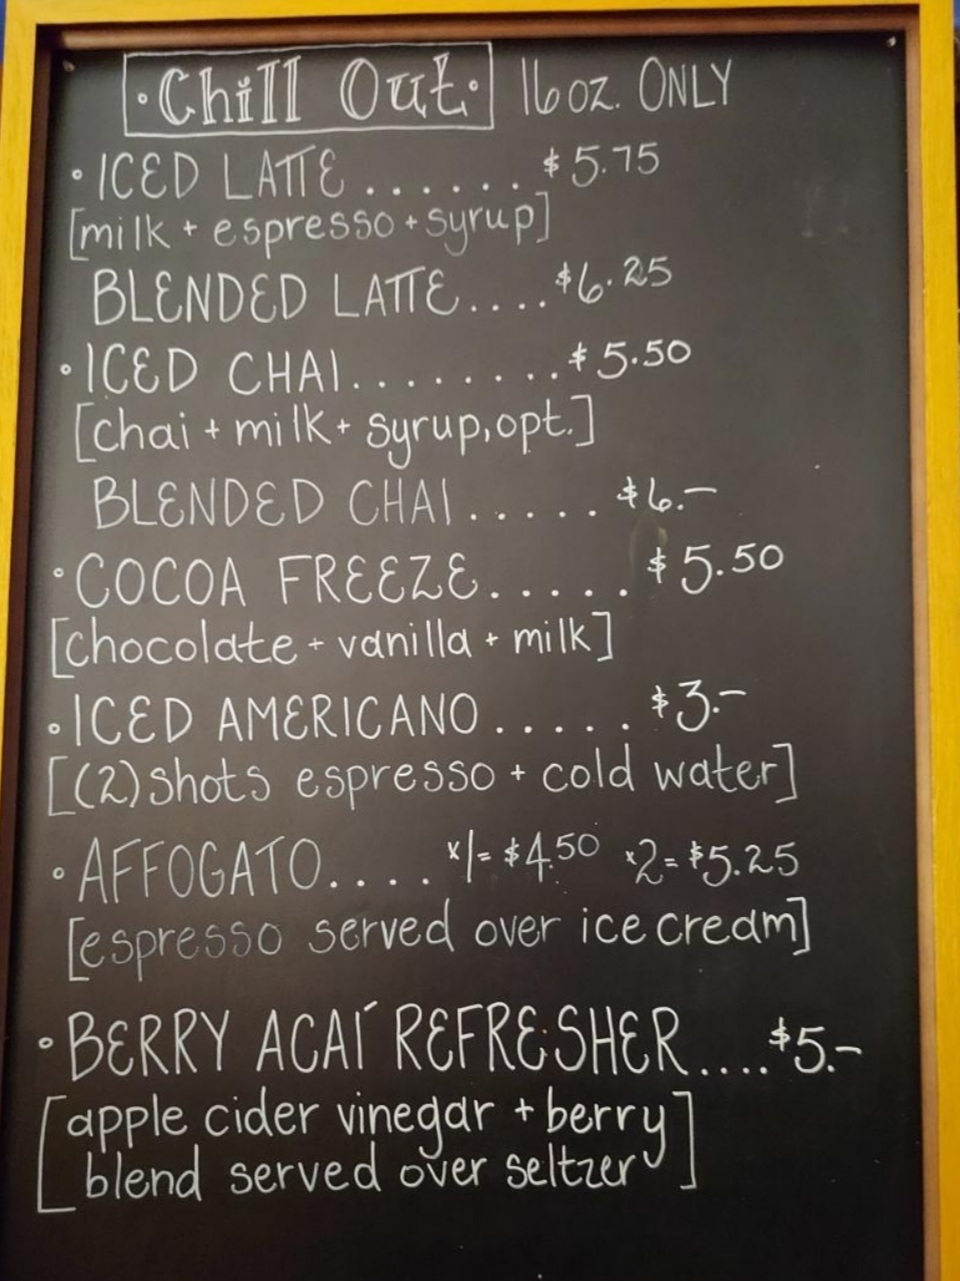 ·Chill Out· 16 oz. ONLY
· ICED LATTE ....... $5.75
[milk + espresso + syrup]
BLENDED LATTE.... $6.25
· ICED CHAI......... $5.50
[chai + milk + syrup, opt.]
BLENDED CHAI ..... $6.–
· COCOA FREEZE..... $5.50
[chocolate + vanilla + milk]
· ICED AMERICANO ..... $3.–
[(2) shots espresso + cold water]
· AFFOGATO.... x1= $4.50 x2= $5.25
[espresso served over ice cream]
· BERRY ACAÍ REFRESHER.... $5.–
[apple cider vinegar + berry
blend served over seltzer]